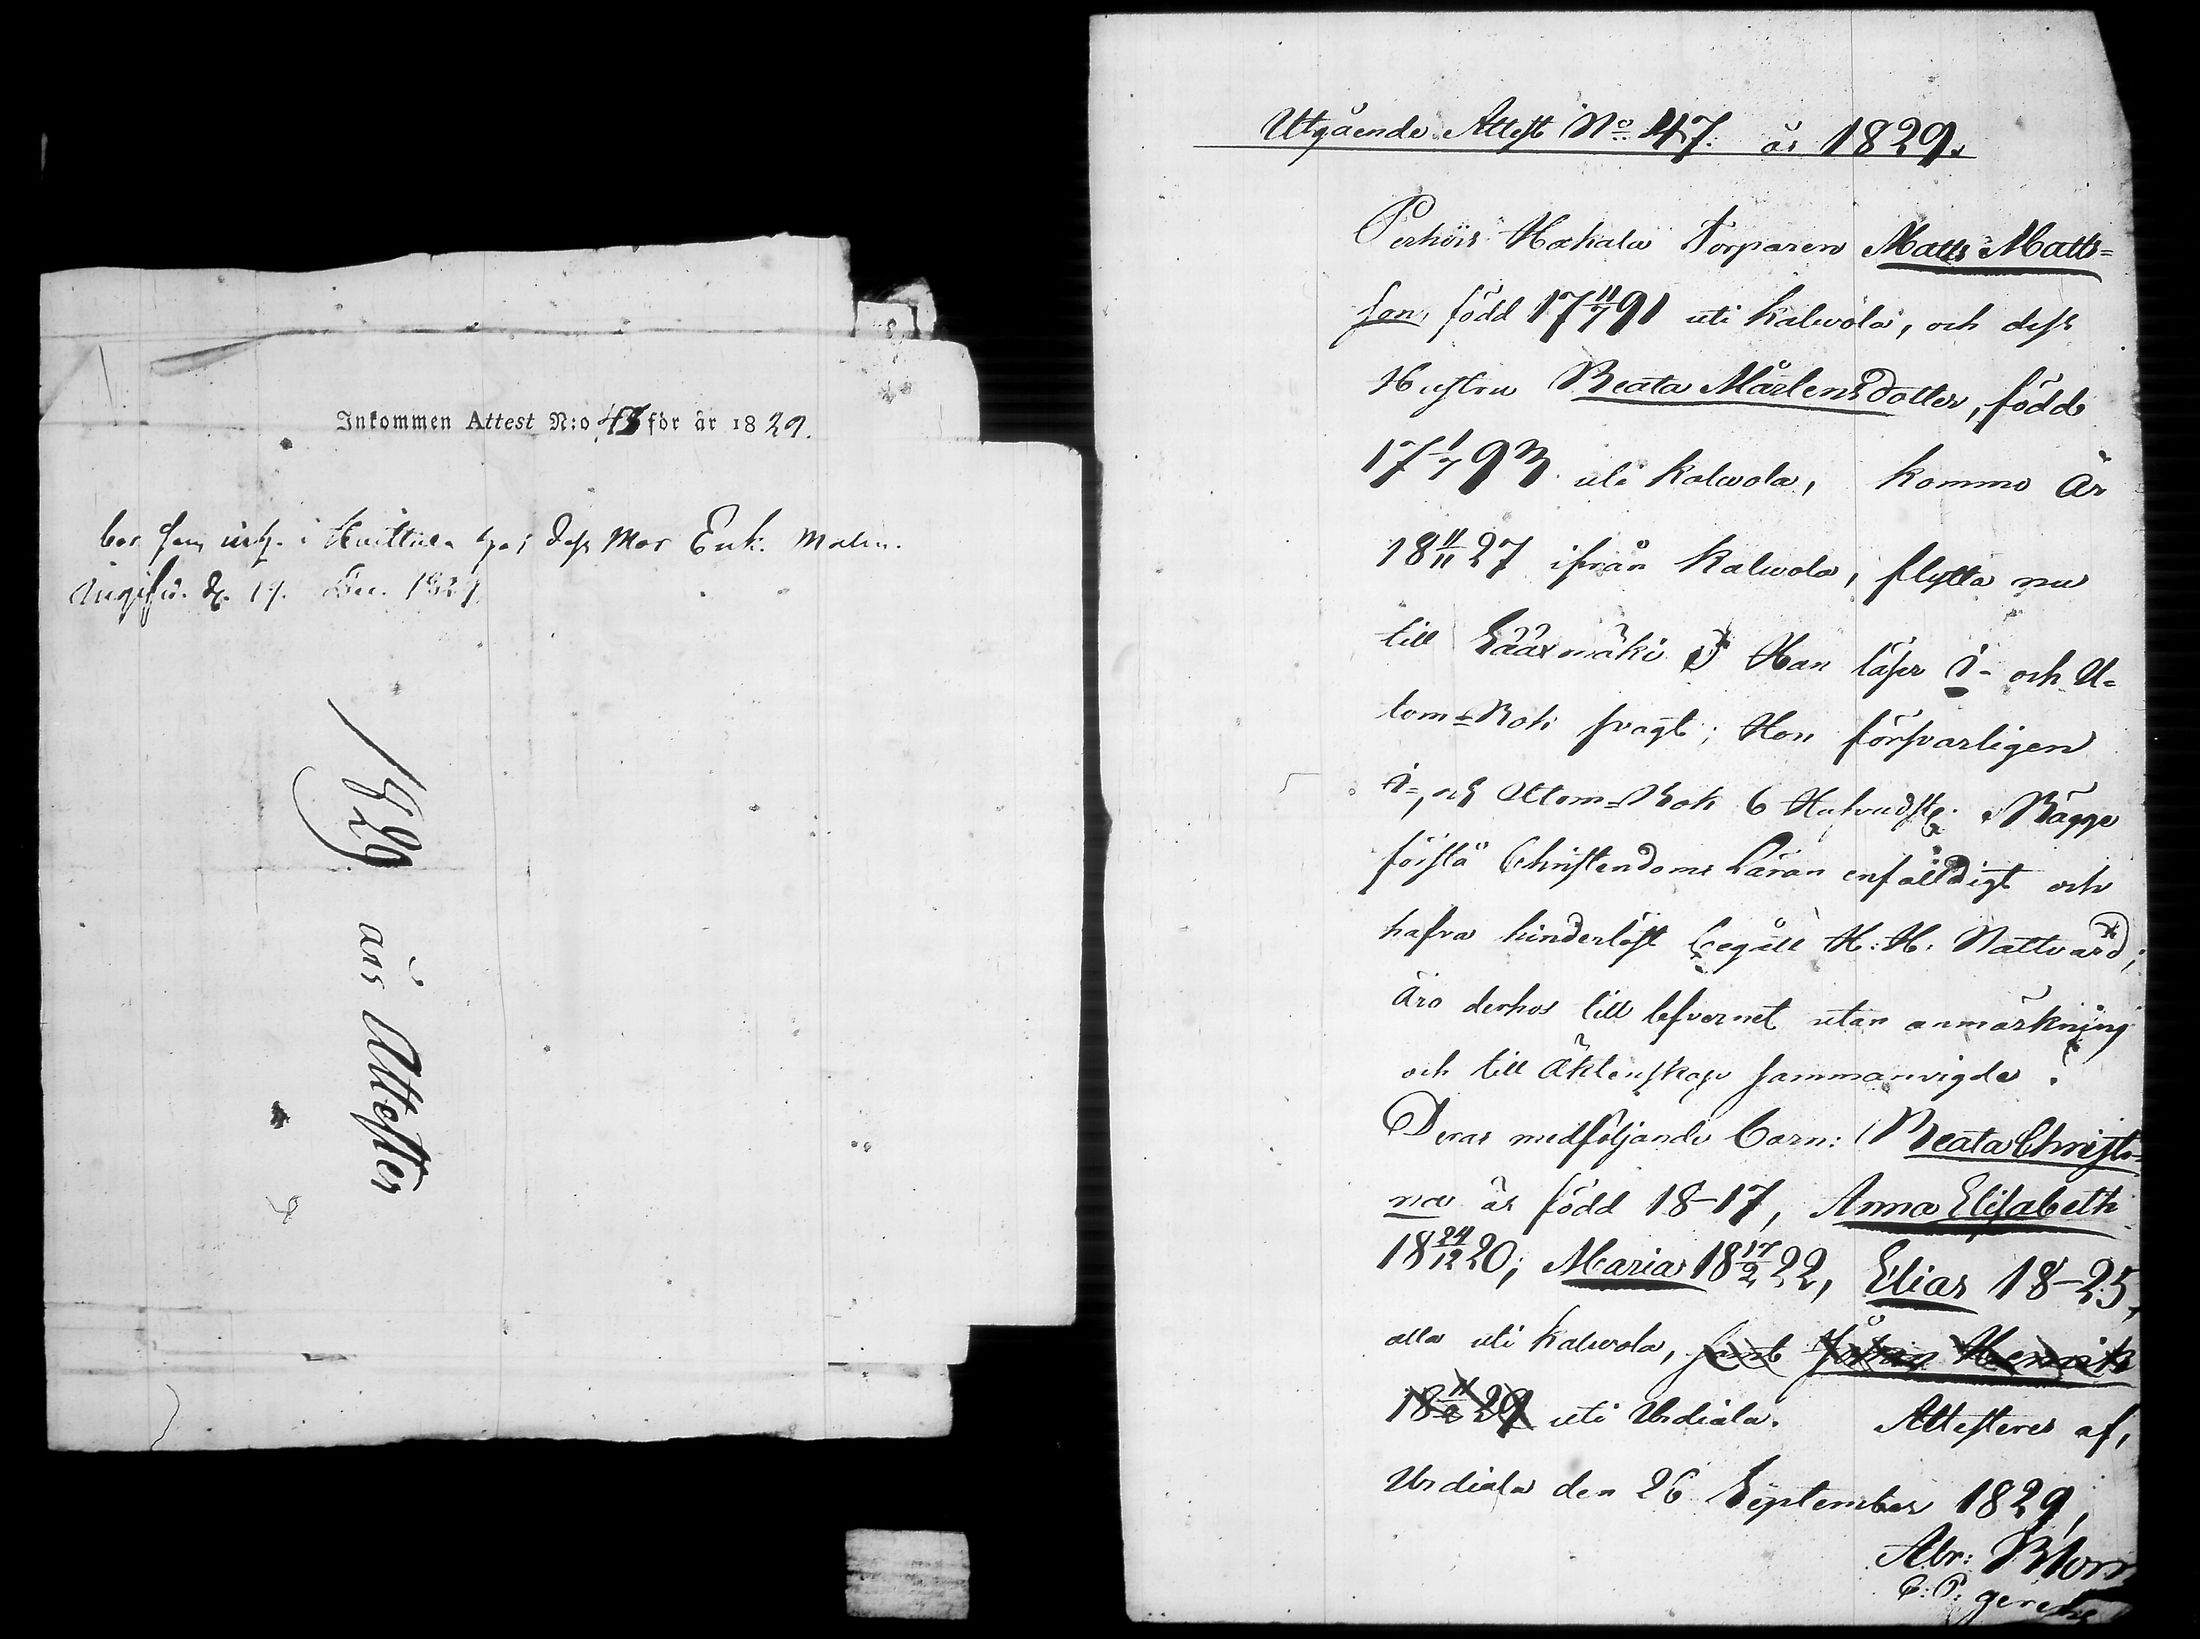 Inkommen Attest N:o 43 för år 1829.
bor hos Mor Enk. Malin.
d. 19. Dec. 1829
1829 års Attester
Utgående Attest No 47. år 1829.
Perhöis Hakala Torparen Matts Matts=
son, född 17 11/7 91 uti Kalwola, och dess
Hustru Beata Mårtensdotter, född
17 1/7 93 uti Kalwola, kommo År
18 11/11 27 ifrån Kalwola, flytta nu
till Sääxmäki. Han läser i- och U=
tom=Bok svagt; Hon försvarligen
i-, och Utom=Bok 6 Hufvudst; Bägge
förstå Christendoms Läran enfäldigt och
hafva hinderlöst begått H. H. Nattvard,
äro derhos till lefvernet utan anmärkning
och till Äktenskap sammanvigde.
Deras medföljande barn: Beata Christi=
na är född 18–17, Anna Elisabeth
18 24/12 20; Maria 18 17/2 22, Elias 18–25,
alla uti Kalwola, samt Johan Henrik
18 11/2 29 uti Urdiala. Attesteres af,
Urdiala den 26 September 1829,
Abr: Blom
C. P. gerens